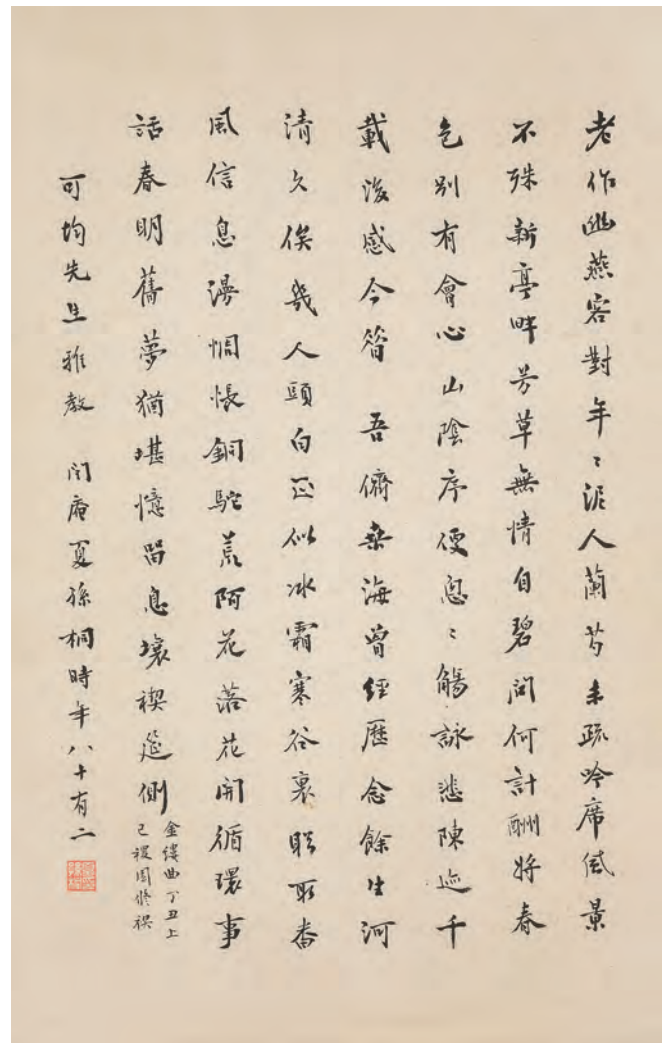 老作幽燕客對年〻泥人蘭芍未疏吟席風景
不殊新亭畔芳草無情自碧問何計酬將春
色別有會心山陰序便悤〻觴詠悲陳迹千
載後感今昔 吾儕桑海曾經歷念餘生河
清久俟幾人頭白正似冰霜寒谷裏盼取番
風信息漫惆悵銅駝荒陌花落花開循環事
話春明舊夢猶堪憶留息壤禊筵側
金縷曲丁丑上
巳稷園修禊
可均先生雅教 閏庵夏孫桐時年八十有二